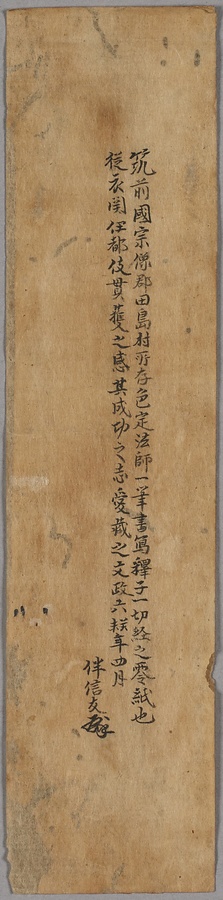 筑前國宗像郡田島村所存色定法師一筆書寫釋子一切経之零紙也
従衣関伊都伎貫獲之感其成功之志愛蔵之文政六癸年四月
伴信友